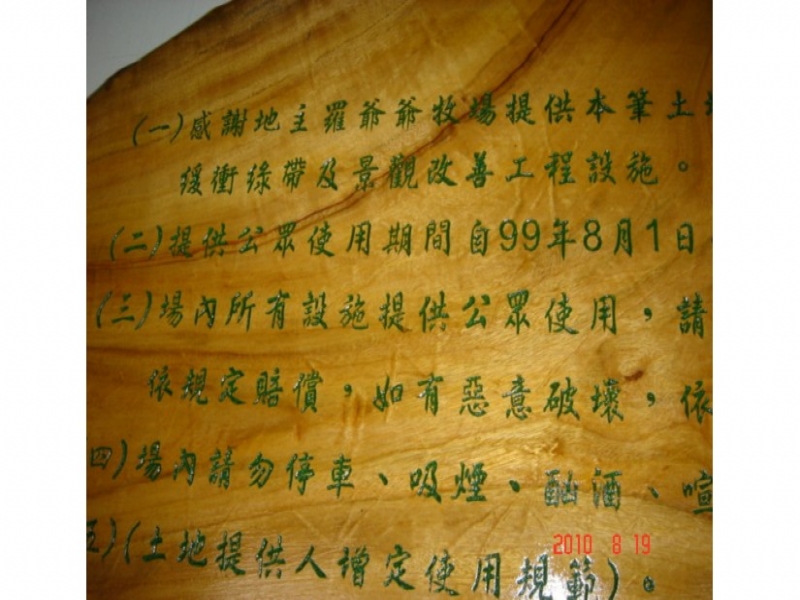 (一)感謝地主羅爺爺牧場提供本筆土地
緩衝綠帶及景觀改善工程設施。
(二)提供公眾使用期間自99年8月1日
(三)場內所有設施提供公眾使用,請
依規定賠償,如有惡意破壞,依
四)場內請勿停車、吸煙、酗酒、喧
五)(土地提供人增定使用規範)。
2010 8 19